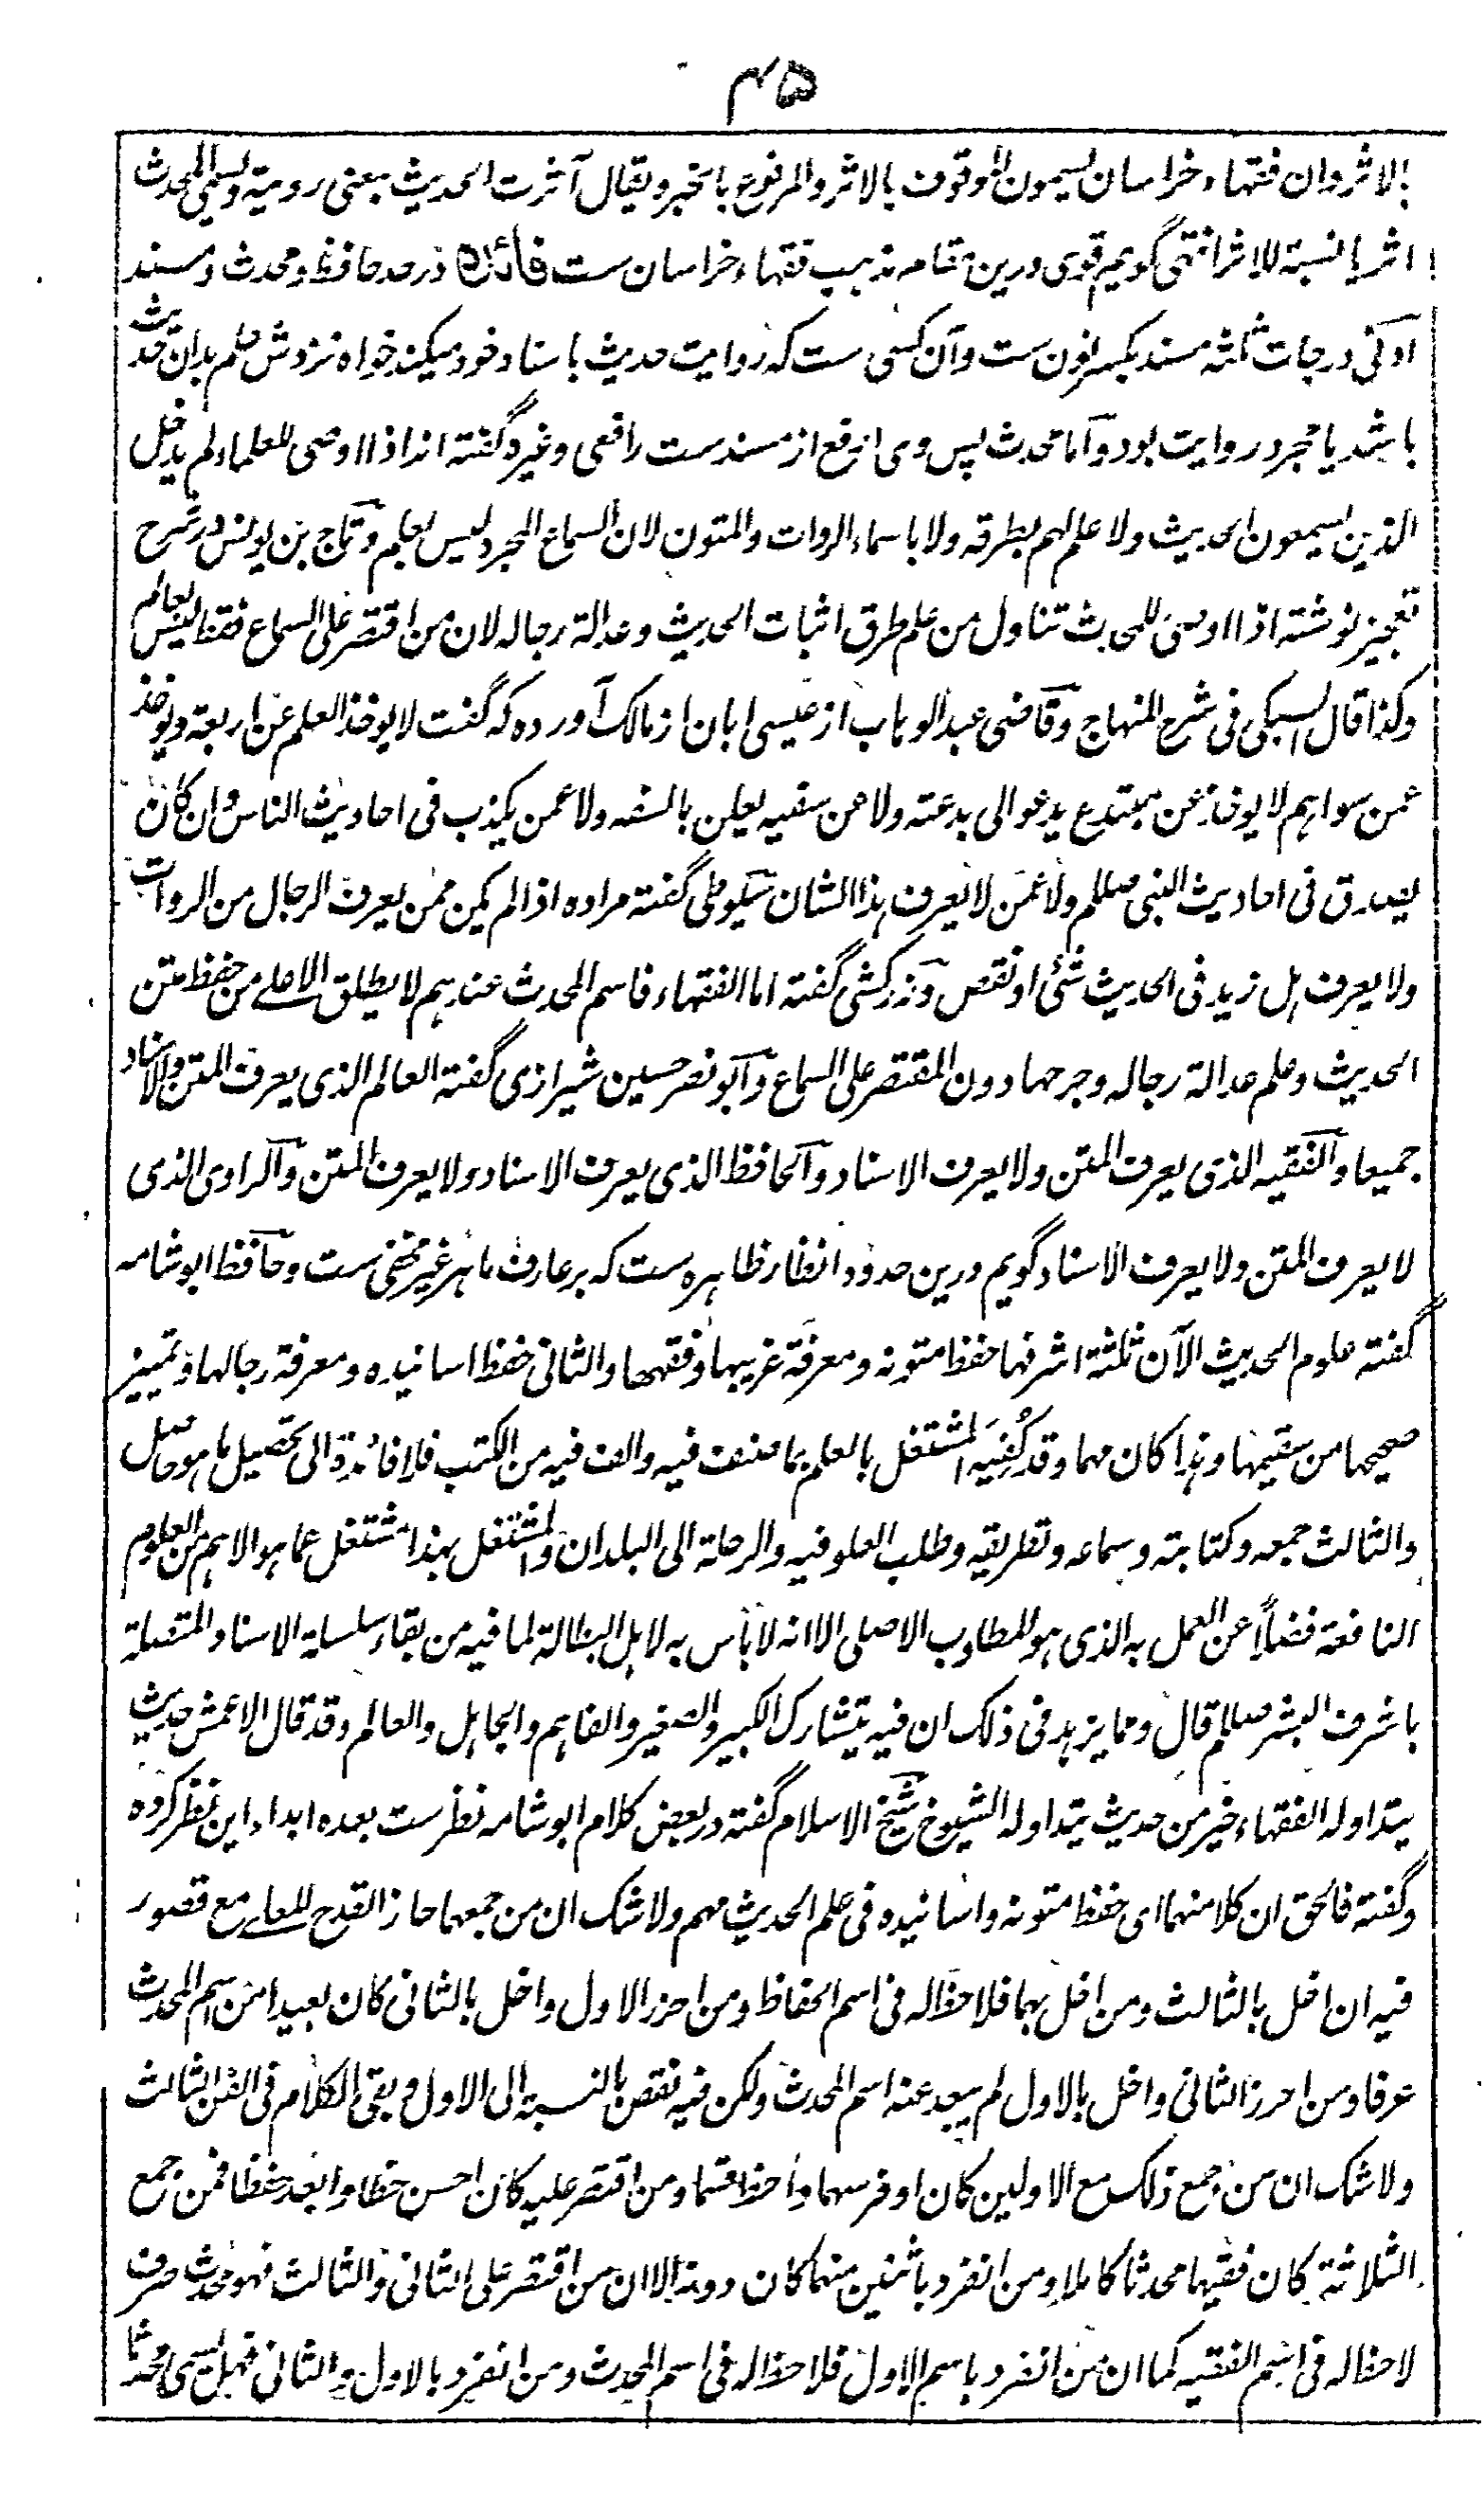 ۴۵
بالاثر وان فقهاء خراسان یسمون الموقوف بالاثر والمرفوع بالخبر ویقال آثرت الحدیث بمعنی رویته ویسمی المحدث
اثریا نسبة للاثر انتهی گویم قوی درین مقام مذهب فقهاء خراسان ست فائده در حد حافظ و محدث و مسند
ادنی درجات ثلثه مسند بکسر نون ست وآن کسی ست که روایت حدیث باسناد خود میکند خواه نزدش علم بدان حدیث
باشد یا مجرد روایت بود واما محدث پس وی ارفع از مسند ست رافعی وغیره گفته اند اذا اوصی للعلماء لم یدخل
الذین یسمعون الحدیث ولا علم لهم بطرقه ولا باسماء الروات والمتون لان السماع المجرد لیس بعلم وتاج بن یونس در شرح
تعجیز نوشته اذا اوصی للمحدث تناول من علم طرق اثبات الحدیث وعدالة رجاله لان من اقتصر علی السماع فقط لیس بعالم
وکذا قال السبکی فی شرح المنهاج وقاضی عبد الوهاب از عیسی ابان از مالک آورده که گفت لا یوخذ العلم عن اربعة ویوخذ
عمن سواهم لا یوخذ عن مبتدع یدعو الی بدعته ولا عن سفیه یعلن بالسفه ولا عمن یکذب فی احادیث الناس وان کان
یصدق فی احادیث النبی صللم ولا عمن لا یعرف هذا الشان سیوطی گفته مراده اذا لم یکن ممن یعرف الرجال من الروات
ولا یعرف هل زید فی الحدیث شئ او نقص وزرکشی گفته اما الفقهاء فاسم المحدث عندهم لا یطلق الا علے من حفظ متن
الحدیث وعلم عدالة رجاله وجرحها دون المقتصر علی السماع وابو نصر حسین شیرازی گفته العالم الذی یعرف المتن والاسناد
جمیعا والفقیه الذی یعرف المتن ولا یعرف الاسناد والحافظ الذی یعرف الاسناد ولا یعرف المتن والراوی الذی
لا یعرف المتن ولا یعرف الاسناد گویم درین حدود انظار ظاهره ست که بر عارف ماهر غیر مخفی ست وحافظ ابوشامه
گفته علوم الحدیث الآن ثلثة اشرفها حفظ متونه ومعرفة غریبها وفقهها والثانی حفظ اسانیده ومعرفة رجالها وتمییز
صحیحها من سقیمها وهذا کان مهما وقد کُفِیَه المشتغل بالعلم بما صنف فیه والف فیه من الکتب فلا فائدة الی تحصیل ما هو حاصل
والثالث جمعه وکتابته وسماعه وتطریقه وطلب العلو فیه والرحلة الی البلدان والمشتغل بهذا مشتغل عما هو الاهم من العلوم
النافعة فضلاً عن العمل به الذی هو المطلوب الاصلی الا انه لا بأس به لاهل البطالة لما فیه من بقاء سلسلة الاسناد المتصلة
باشرف البشر صللم قال ومما یزهد فی ذلک ان فیه یتشارک الکبیر والصغیر والفاهم والجاهل والعالم وقد قال الاعمش حدیث
یتداوله الفقهاء خیر من حدیث یتداوله الشیوخ شیخ الاسلام گفته در بعض کلام ابوشامه نظر ست بعده ابداء این نظر کرده
وگفته فالحق ان کلا منهما ای حفظ متونه واسانیده فی علم الحدیث مهم ولا شک ان من جمعهما حاز القدح المعلے مع قصور
فیه ان اخل بالثالث ومن اخل بهما فلا حظ له فی اسم الحفاظ ومن احرز الاول واخل بالثانی کان بعیدا من اسم المحدث
عرفا ومن احرز الثانی واخل بالاول لم یبعد عنه اسم المحدث ولکن فیه نقص بالنسبة الی الاول وبقی الکلام فی الفن الثالث
ولا شک ان من جمع ذلک مع الاولین کان اوفر سهما واحظ قسما ومن اقتصر علیه کان اخس حظا وابعد حفظا فمن جمع
الثلاثة کان فقیها محدثا کاملا ومن انفرد باثنین منها کان دونه الا ان من اقتصر علی الثانی والثالث فهو محدث صرف
لا حظ له فی اسم الفقیه کما ان من انفرد باسم الاول فلا حظ له فی اسم المحدث ومن انفرد بالاول والثانی فهل یسمی محدثا